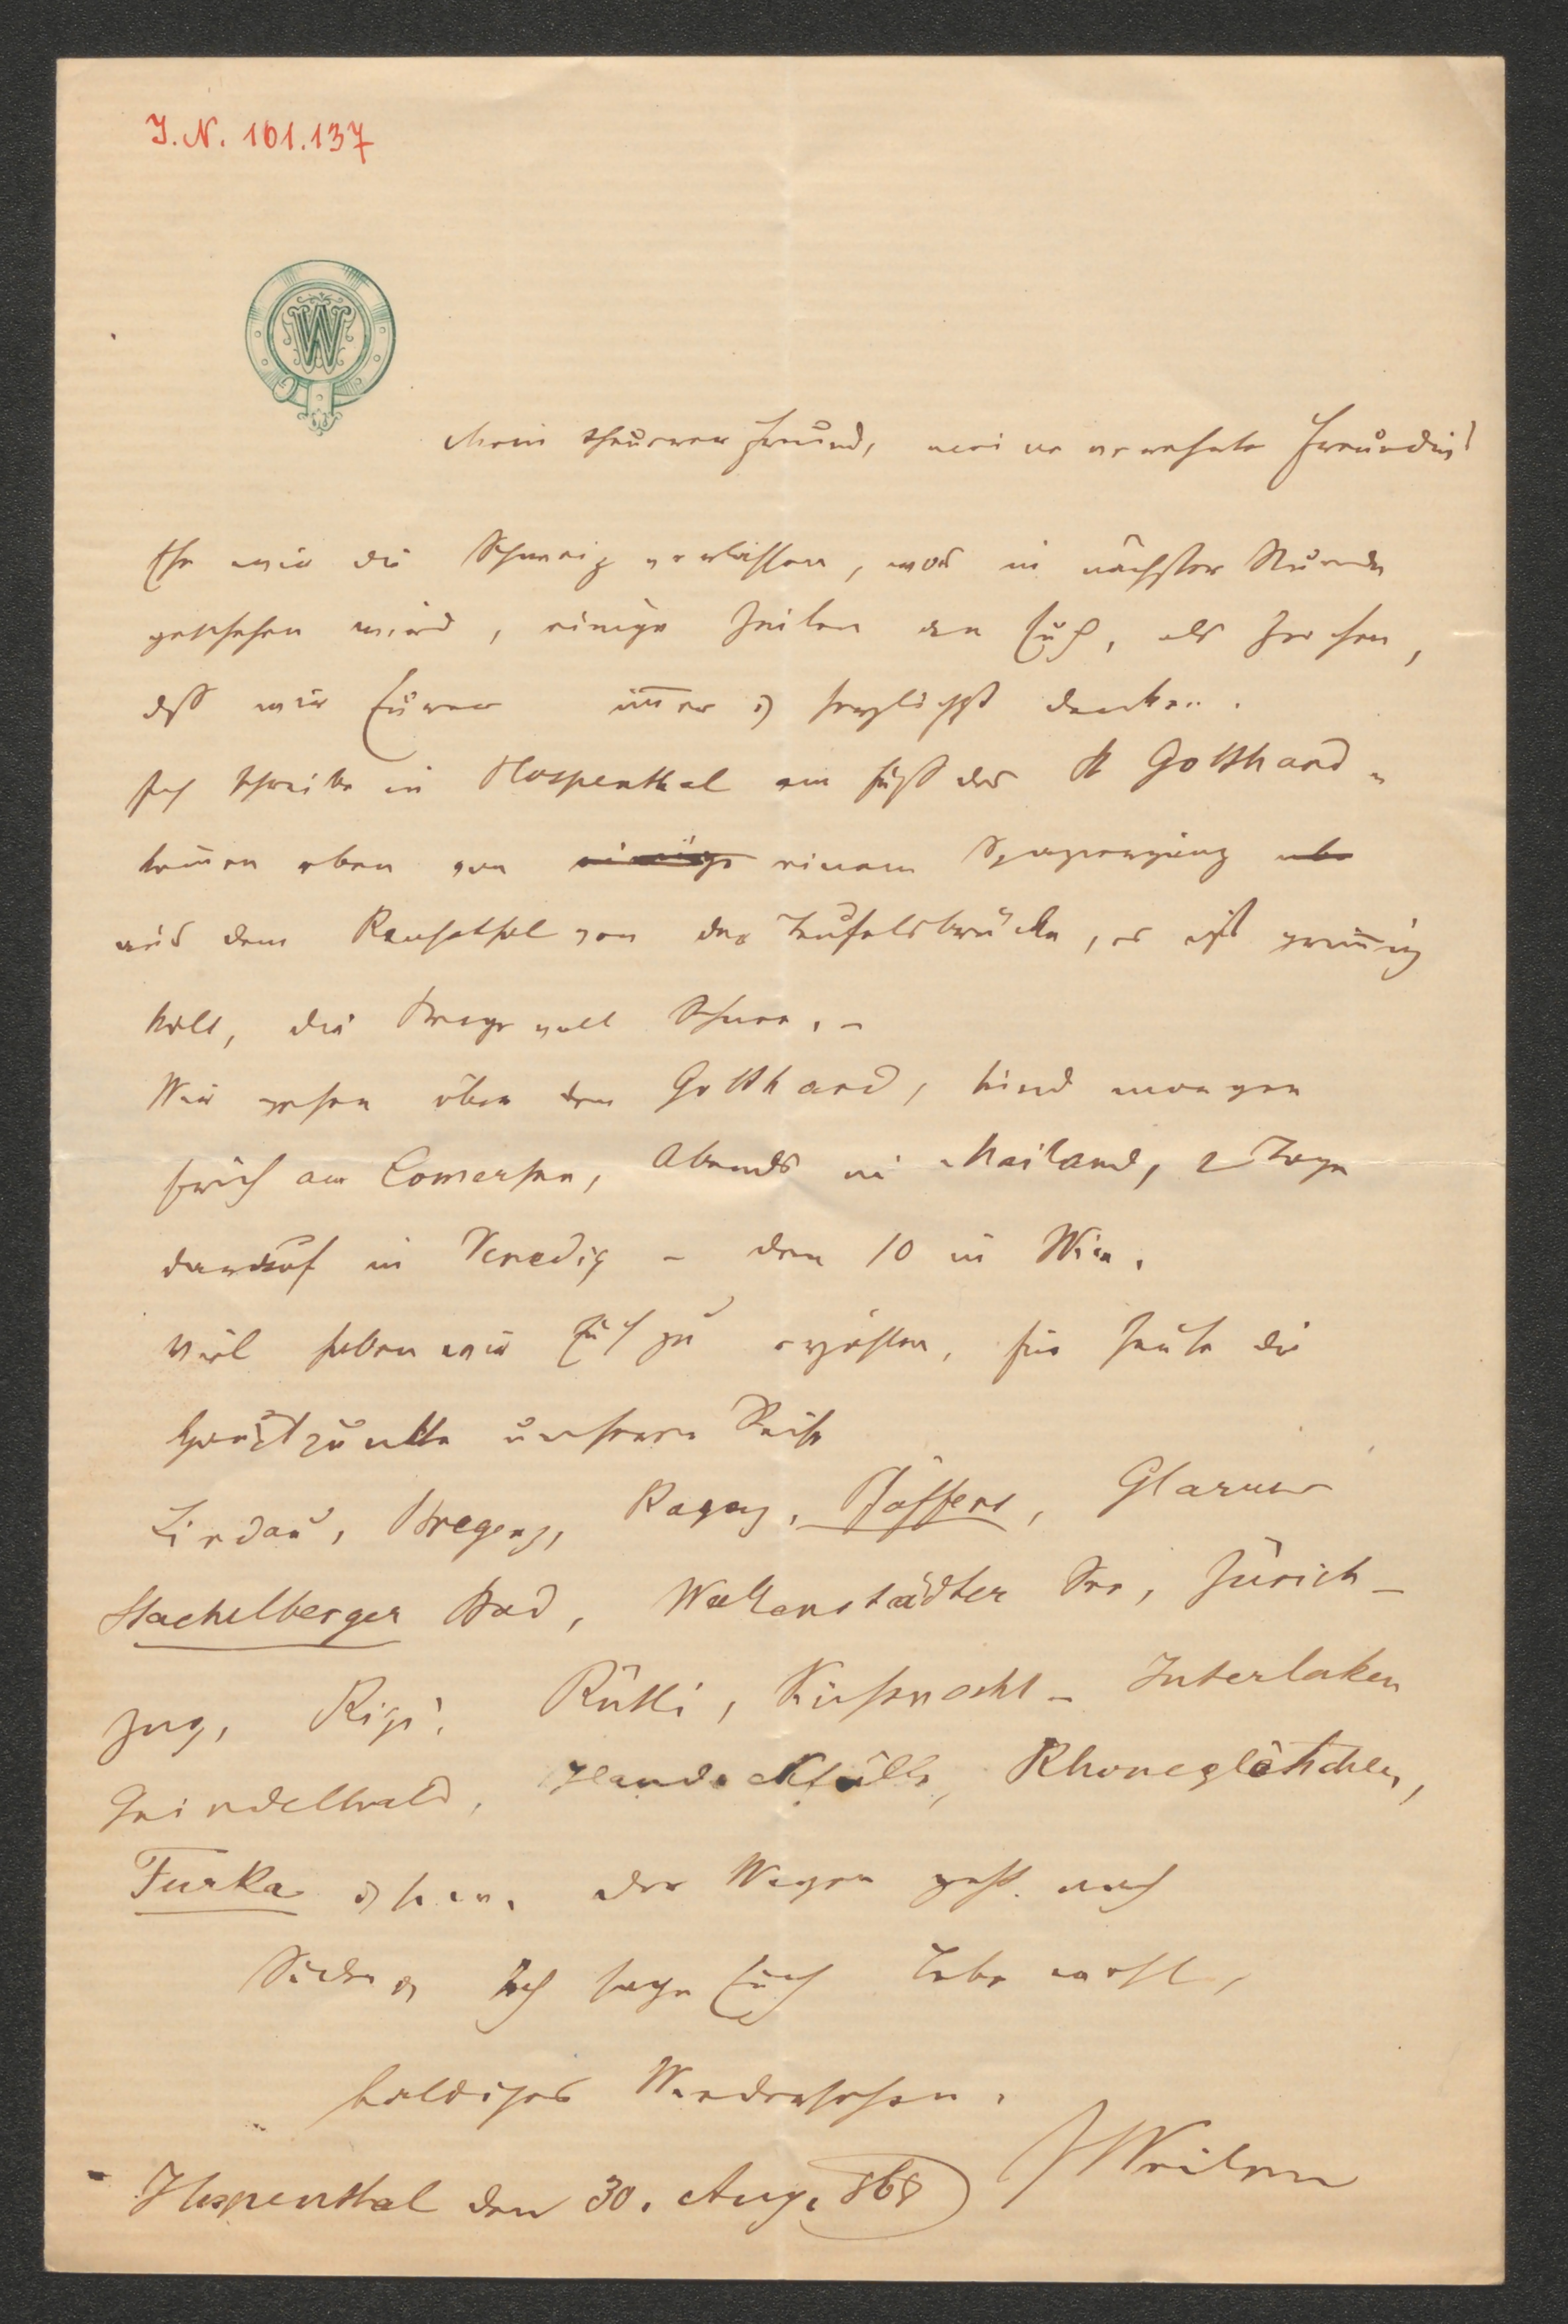 J. N. 101.137
W
Mein theurer Freund, meine verehrte Freundin!
Ehe wir die Schweiz verlassen, was in nächster Stunde
geschehen wird, einige Zeilen an Euch, als Zeichen,
dß wir Eurer im̅er herzlichst denken.
Ich schreibe in Hospenthal am Fuß des St Gotthard
kom̅en eben von einem Spaziergang
aus dem Reußthal von der Teufelsbrücke, es ist grim̅ig
kalt, die Berge voll Schnee. –
Wir gehen über den Gotthard, sind morgen
früh am Comersee, Abends in Mailand, 2 Tage
darauf in Venedig – den 10 in Wien.
Viel haben wir Euch zu erzählen, für heute die
Hauptpunkte unserer Reise
Lindau, Bregenz, Ragaz, Pfäffers, Glarus
Stachelberger Bad, Wallenstädter See, Zürich –
Zug, Rigi, Rütli, Küßnacht – Interlaken
Grindelwald, Handeckfälle, Rhonegletscher,
Furka der Wagen geht nach
Süden Ich sage Euch Lebewohl,
baldiges Wiedersehen.
JWeilen
Hospenthal den 30. Aug. 868